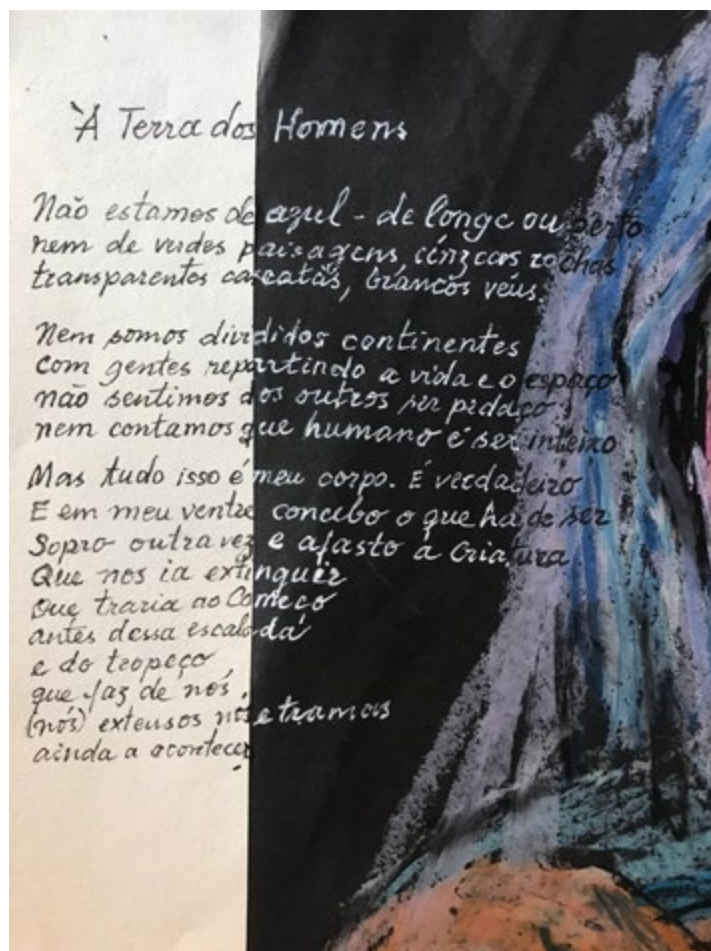 À Terra dos Homens
Não estamos de azul - de longe ou perto
nem de verdes paisagens, cinzeas rochas
transparentes cascatas, brancos véus.
Nem somos divididos continentes
com gentes repartindo a vida e o espaço
não sentimos dos outros ser pedaço
nem contamos que humano é ser inteiro
Mas tudo isso é meu corpo. É verdadeiro
E em meu ventre concebo o que há de ser
Sopro outra vez e afasto a criatura
Que nos ia extinguir
Que traria ao Começo
antes dessa escalada
e do tropeço
que faz de nós,
(nós) extensos nós e tramas
ainda a acontecer